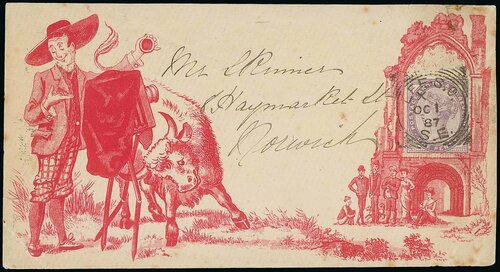 Mr Skinner
Haymarket St
Norwich
F.S.O
OC 1
87
S.E.